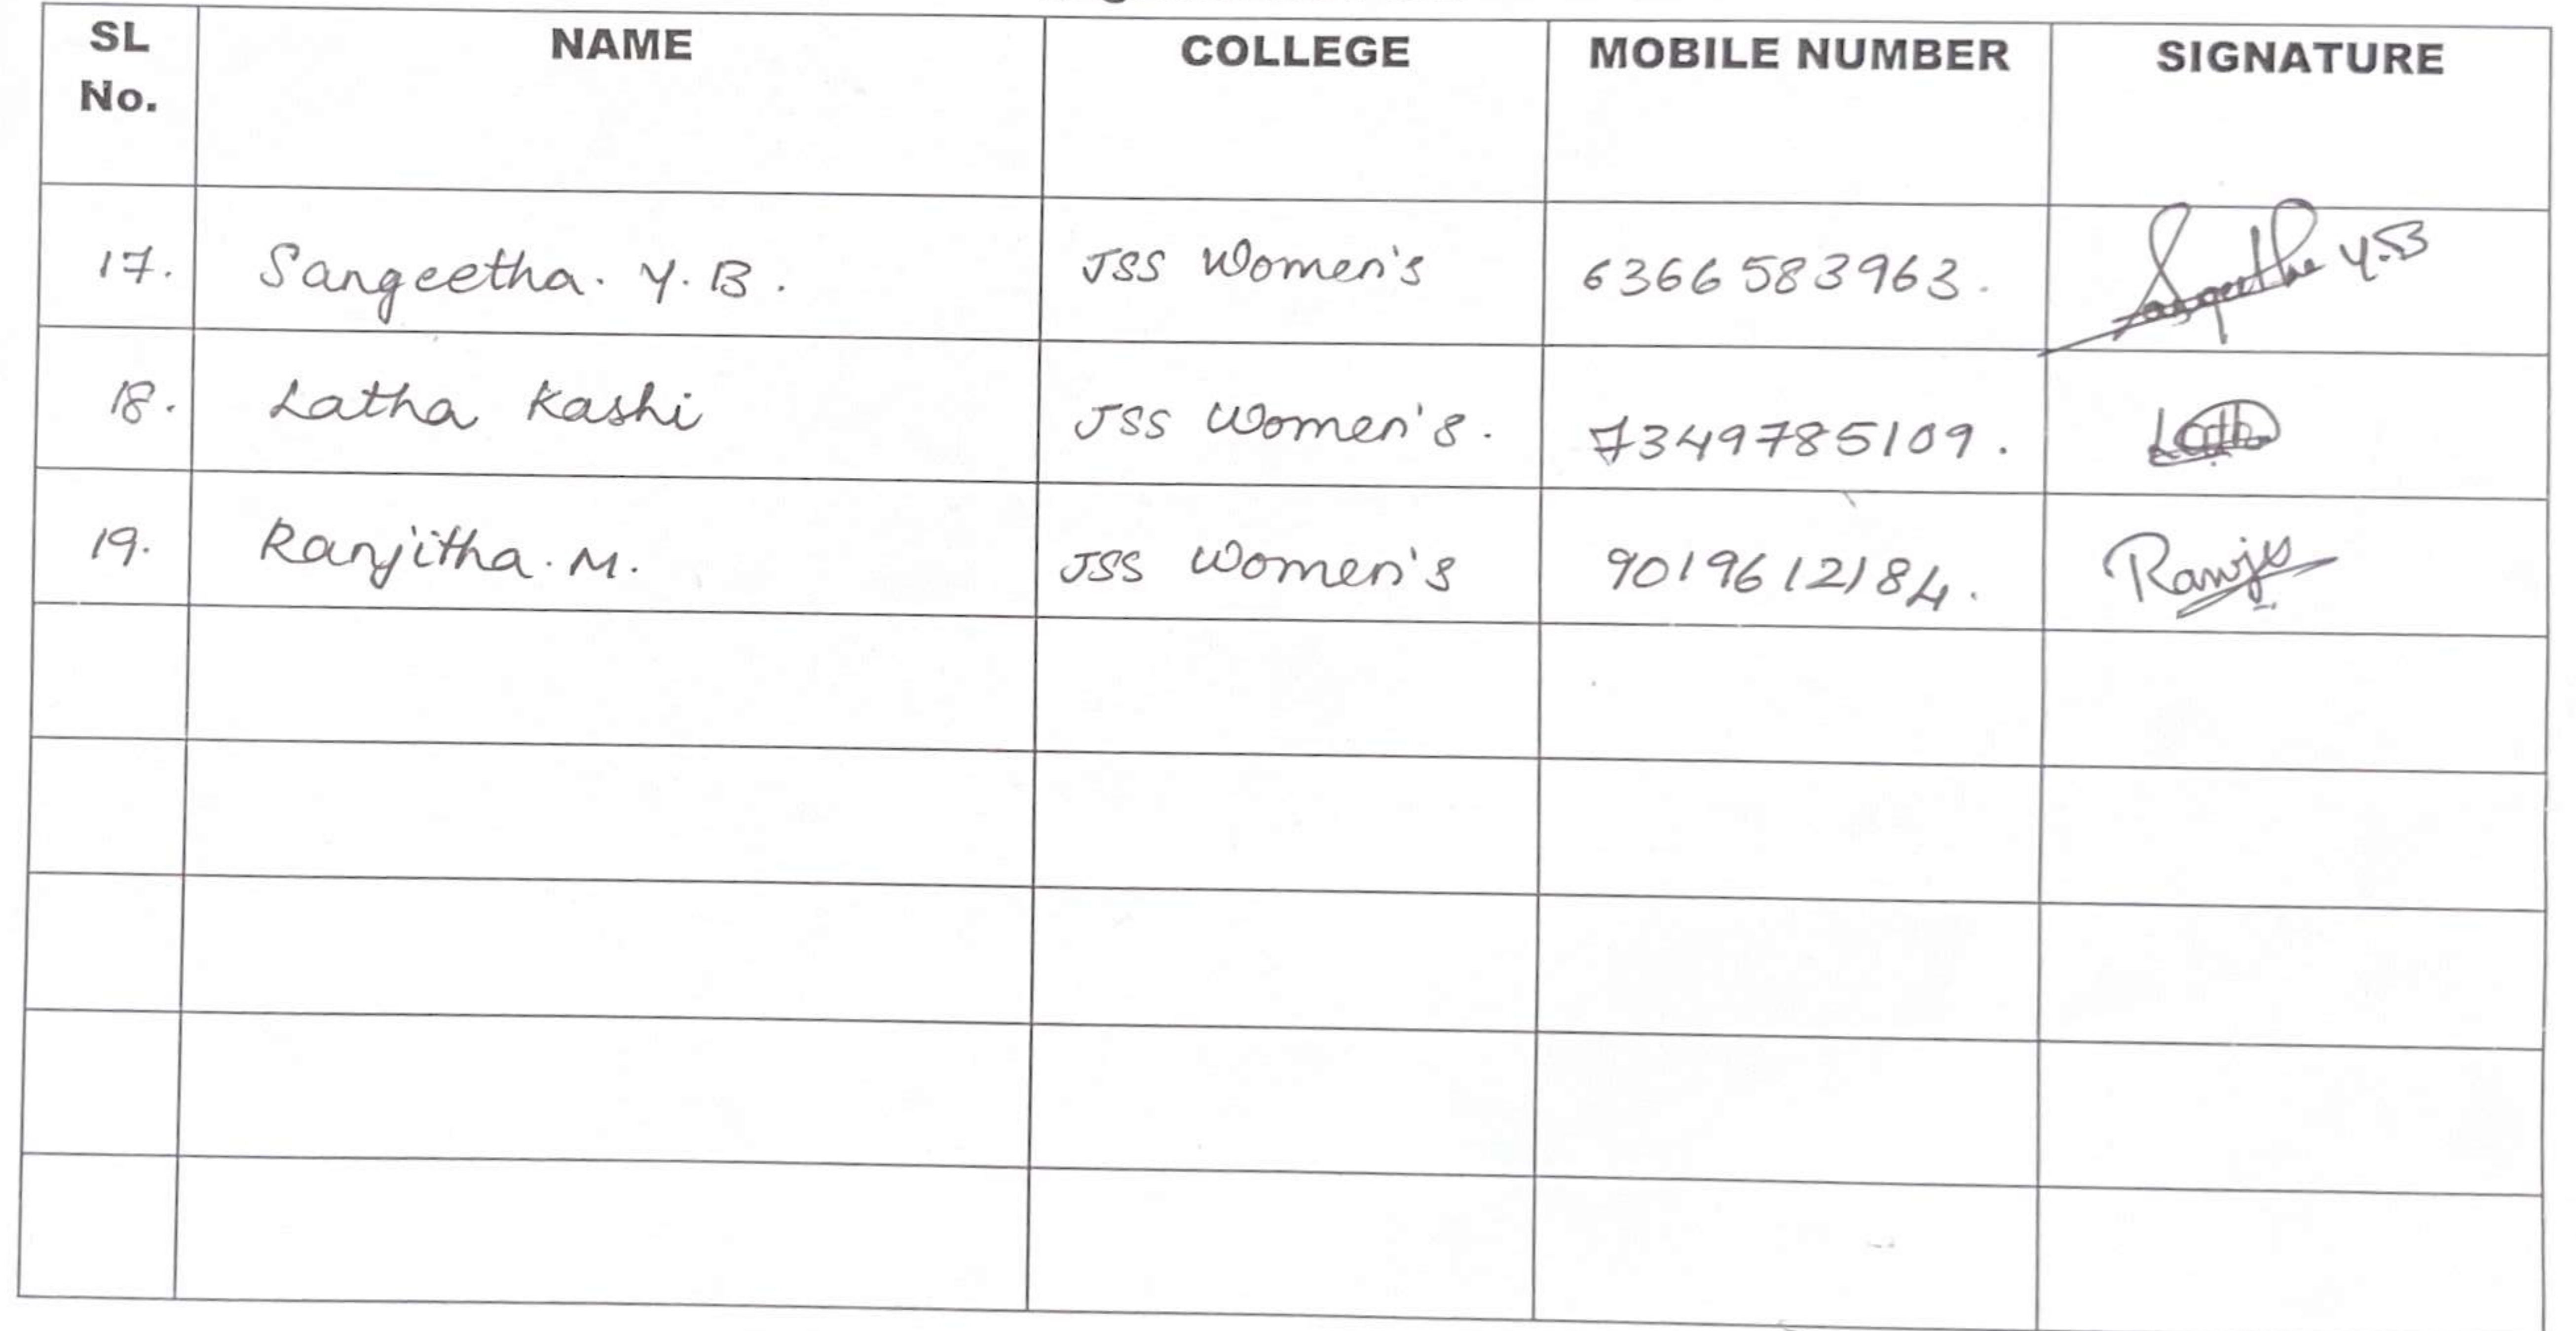 SL No. NAME COLLEGE MOBILE NUMBER SIGNATURE
17. Sangeetha. Y. B. JSS Women's 6366583963. Sangeetha Y.B
18. Latha Kashi JSS Women's. 7349785109. Latha
19. Ranjitha. M. JSS Women's 9019612184. Ranju